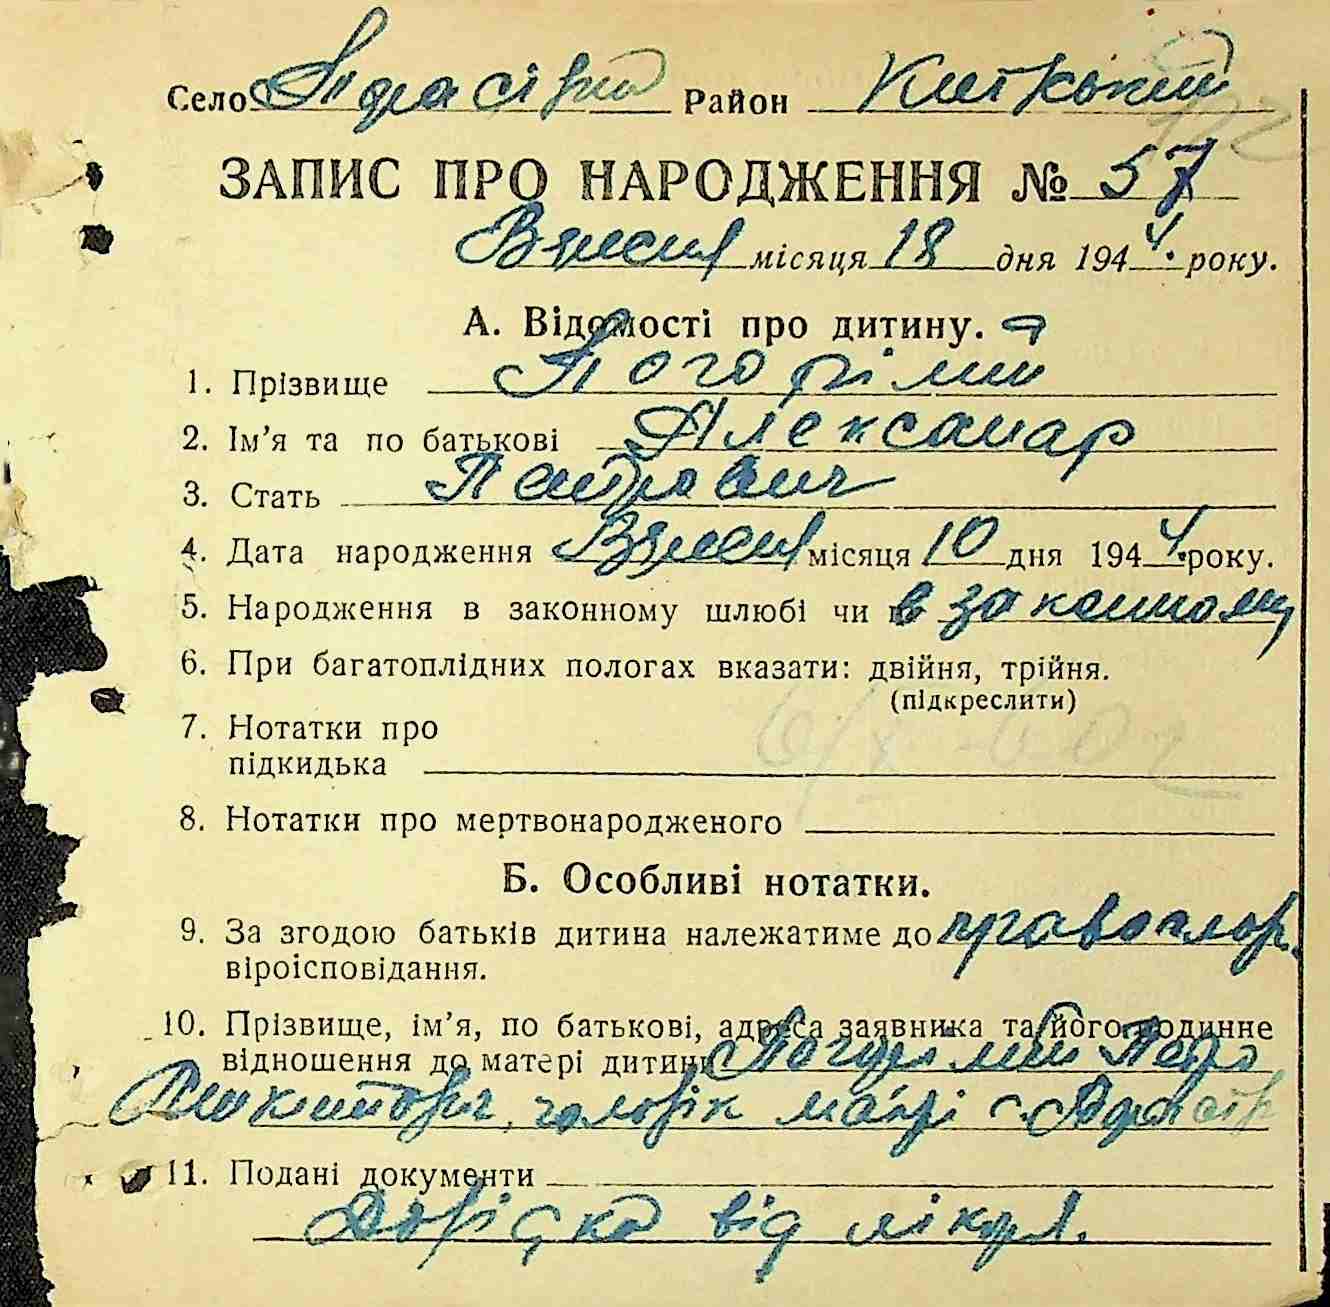 Село Район
ЗАПИС ПРО НАРОДЖЕННЯ № 57
Вересня місяця 18 дня 194 року.
А. Відомості про дитину.
1. Прізвище
2. Ім'я та по батькові Александр
3. Стать Петрович
4. Дата народження Вересня місяця 10 дня 194 року.
5. Народження в законному шлюбі чи в законному
6. При багатоплідних пологах вказати: двійня, трійня.
(підкреслити)
7. Нотатки про
підкидька
8. Нотатки про мертвонародженого
Б. Особливі нотатки.
9. За згодою батьків дитина належатиме до правослов.
віроісповідання.
10. Прізвище, ім'я, по батькові, адреса заявника та його родинне
відношення до матері дитини Петро
чоловік матері с.
11. Подані документи
Довідка від лікаря.